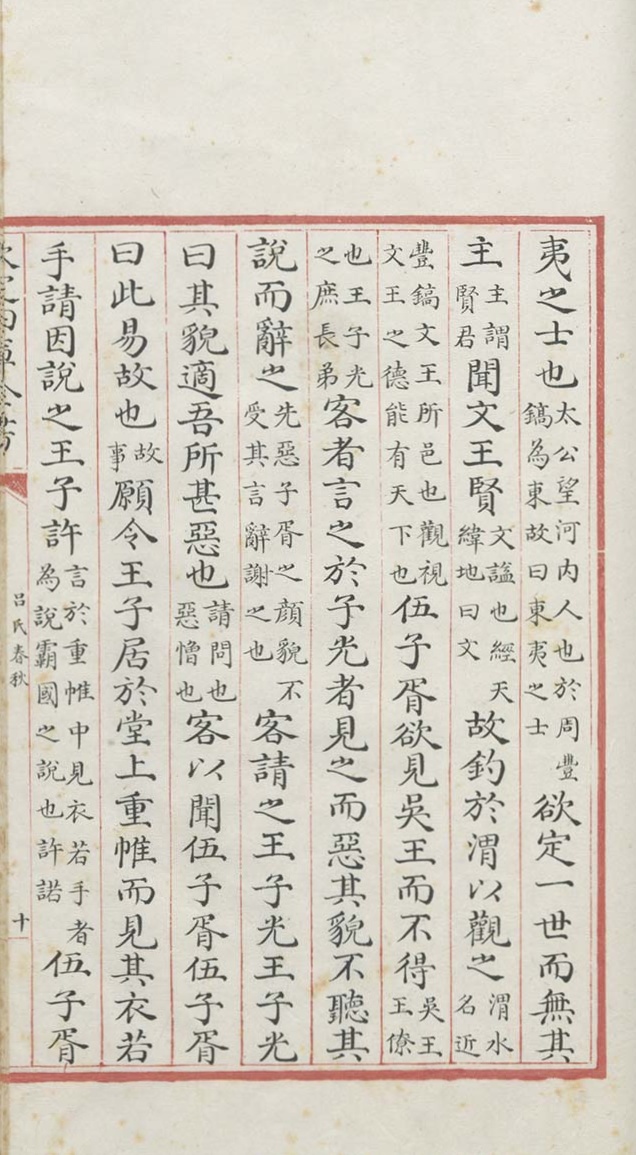 夷之士也太公望河内人也於周豐鎬為東故曰東夷之士欲定一世而無其
主主謂賢君聞文王賢文謚也經天緯地曰文故釣於渭以觀之渭水名近
豐鎬文王所邑也觀視文王之德能有天下也伍子胥欲見吳王而不得吳王王僚
也王子光之庶長弟客者言之於子光者見之而惡其貌不聽其
說而辭之先惡子胥之顏貌不受其言辭謝之也客請之王子光王子光
曰其貌適吾所甚惡也請問也惡憎也客以聞伍子胥伍子胥
曰此易故也故事願令王子居於堂上重帷而見其衣若
手請因說之王子許言於重帷中見衣若手者為說霸國之說也許諾伍子胥
欽定四庫全書
呂氏春秋
十